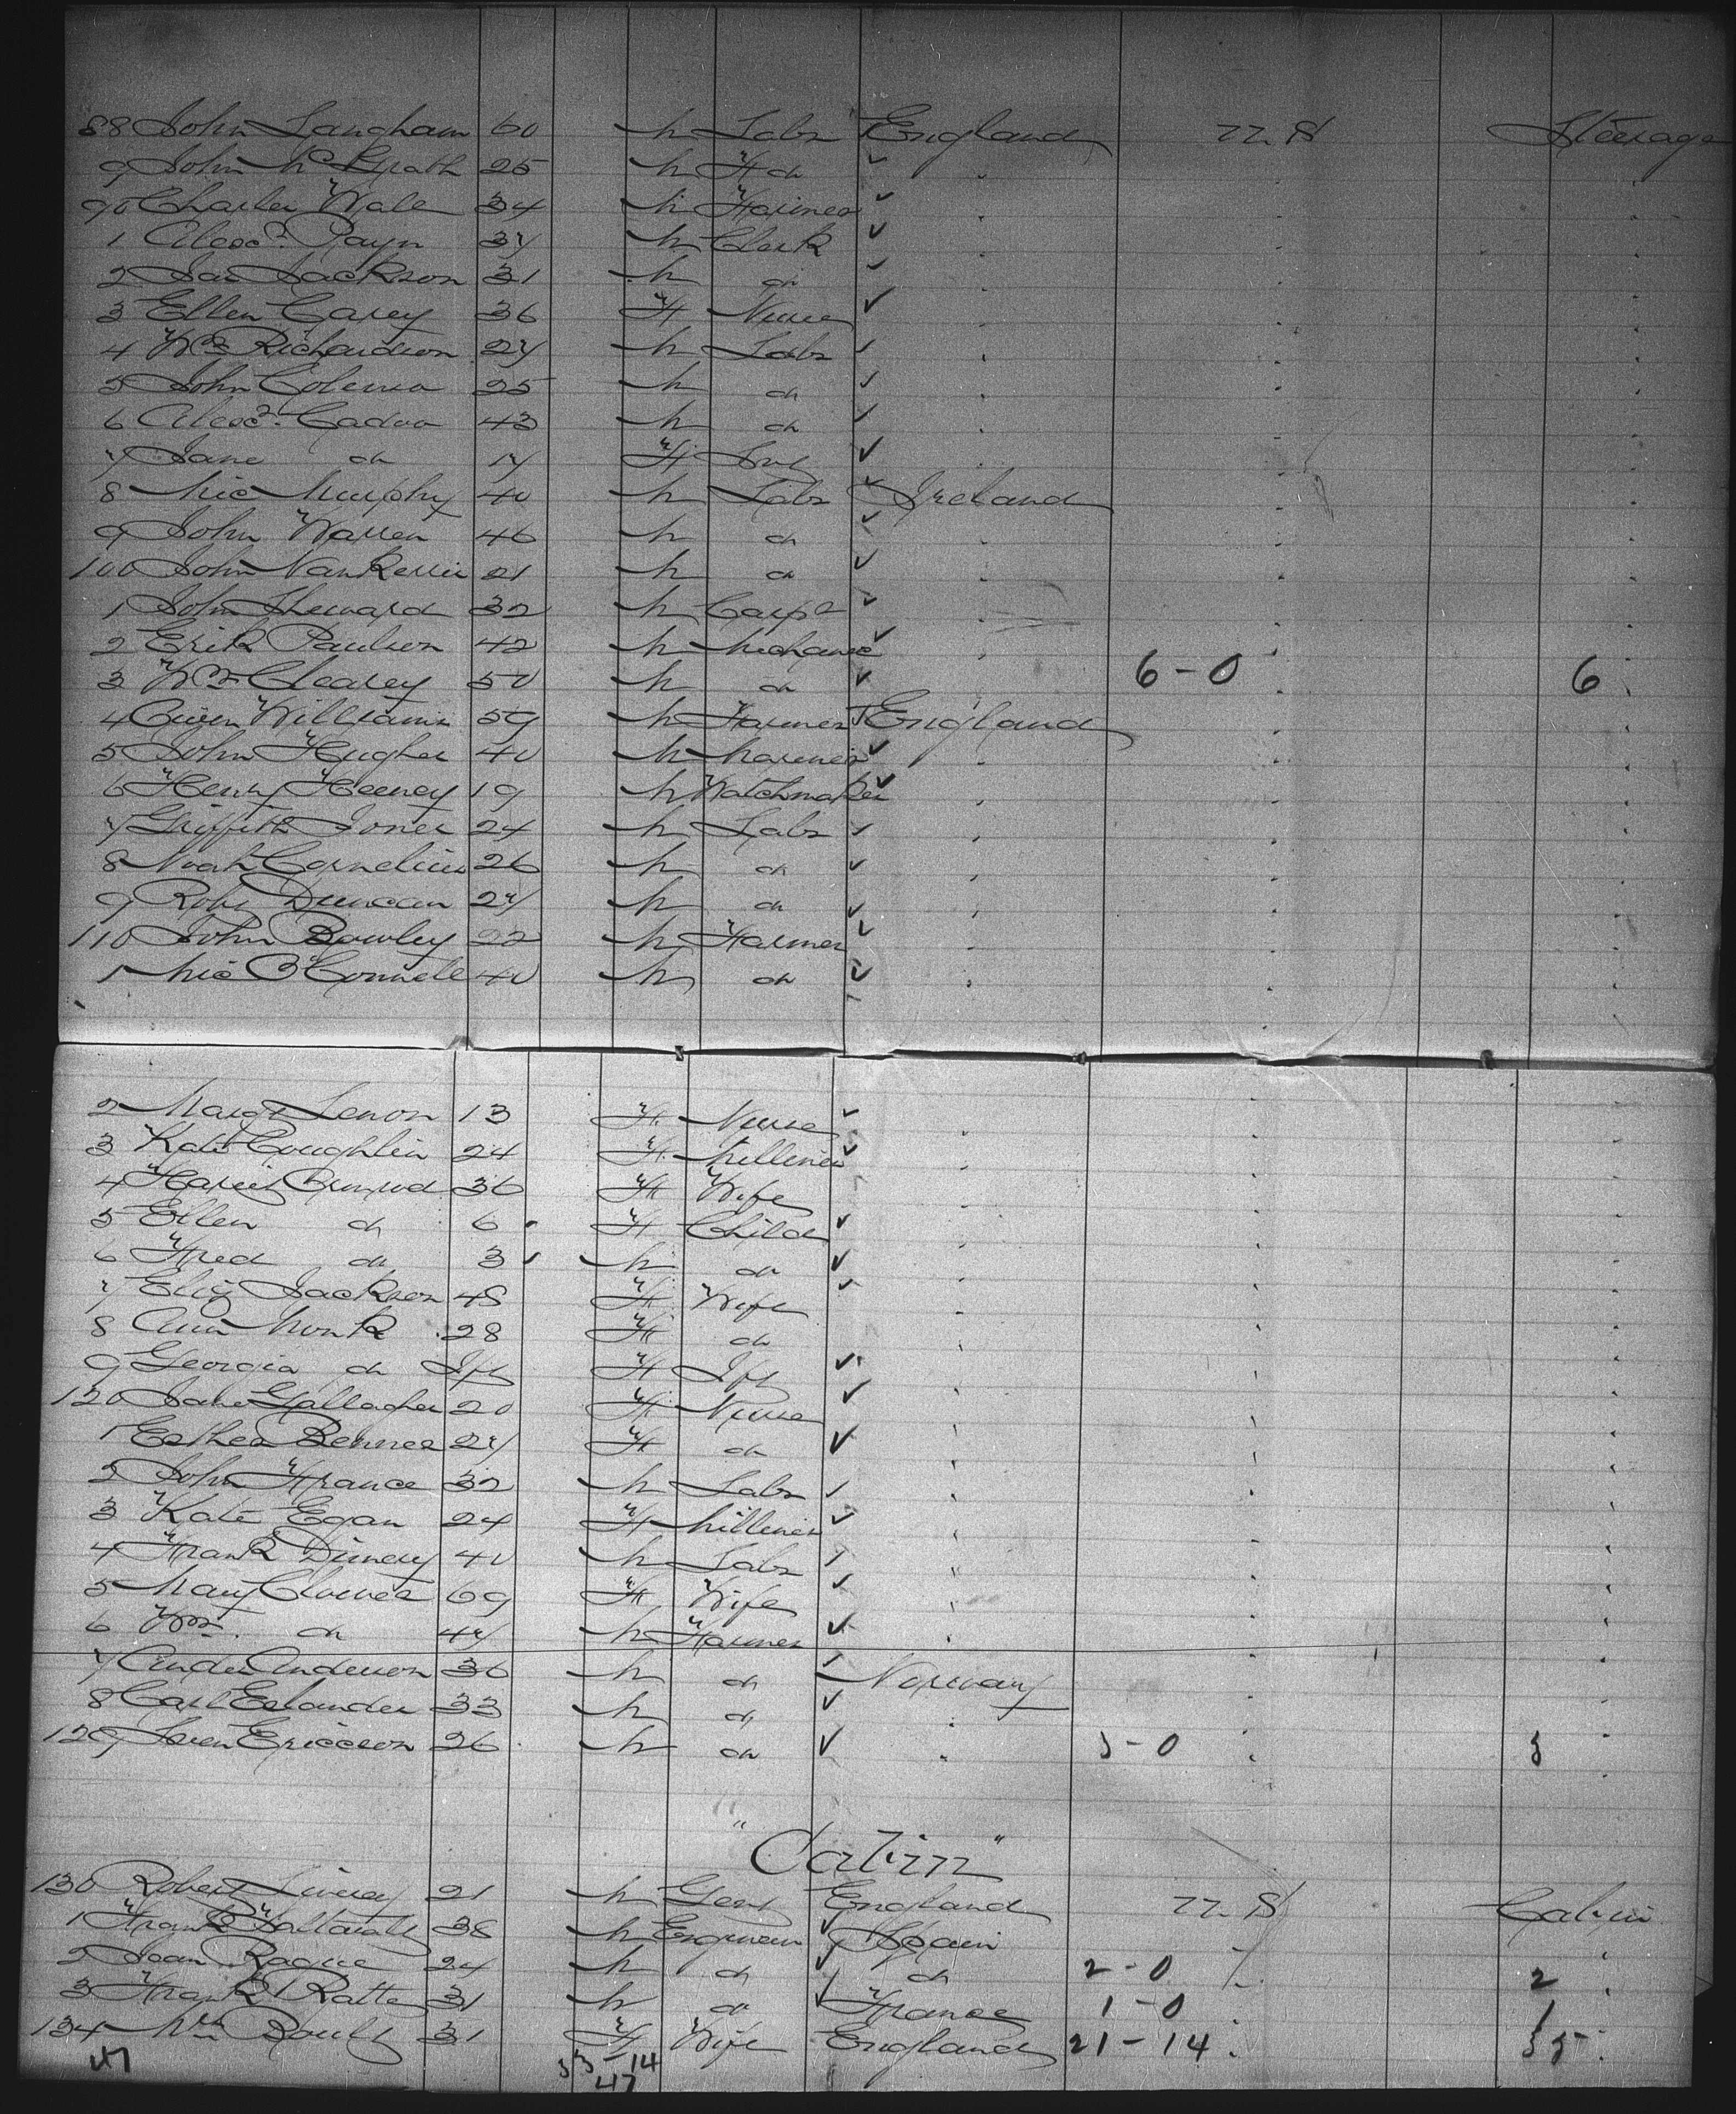 88 John Langham 60 M Labr England U.S Steerage
9 John McGrath 25 M do
90 Charles Wale 34 M Farmer
1 Alexr. Payn 37 M Clerk
2 Jas Jackson 31 M do
3 Ellen Carey 36 F Nurse
4 Wm Richardson 27 M Labr
5 John 25 M do
6 Alexr. 43 M do
7 Jane do 17 F
8 Mic Murphy 40 M Labr Ireland
9 John Warren 46 M do
100 John 21 M do
1 John Sheward 32 M Carpr
2 Erik Paulson 42 M Mechanic
3 Wm Clearey 50 M do 6-0 6
4 Owen Williams 59 M Farmer England
5 John Hughes 40 M Mariner
6 Henry Heeney 19 M Watchmaker
7 Griffith Jones 24 M Labr
8 Noah Cornelius 26 M do
9 Robt Duncan 27 M do
110 John Bowley 22 M Farmer
1 Mic O'Connell 40 M do
2 Margt Lenon 13 F Nurse
3 Kate Coughlin 24 F Milliner
4 Harriet 36 F Wife
5 Ellen do 6 F Child
6 Fred do 3 M do
7 Eliz Jackson 48 F Wife
8 Ann Monk 28 F do
9 Georgia do Inft F Inft
120 Jane Gallagher 20 F Nurse
1 Esther Benner 27 F do
2 John France 32 M Labr
3 Kate Egan 24 F Milliner
4 Frank 40 M Labr
5 Mary 69 F Wife
6 Wm. do 47 M Farmer
7 Ander Anderson 36 M do Norway
8 Carl 33 M do
129 Soren Ericsson 26 M do 3-0 3
"Cabin"
130 Robert 21 M Gent England U.S Cabin
1 Frank 38 M Engineer Spain
2 Jean 24 M do do 2-0 2
3 Frank Ratte 31 M do France 1-0 1
134 Mrs 31 F Wife England 21-14 35
47 33-14
47